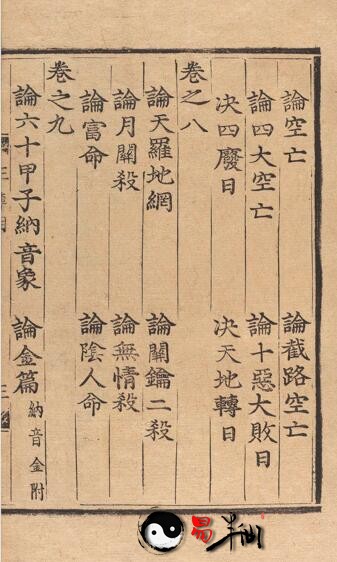 論空亡 論截路空亡
論四大空亡 論十惡大敗日
决四廢日 决天地轉日
卷之八
論天羅地網 論關鑰二殺
論月關殺 論無情殺
論富命 論陰人命
卷之九
論六十甲子納音象 論金篇 納音金附
易